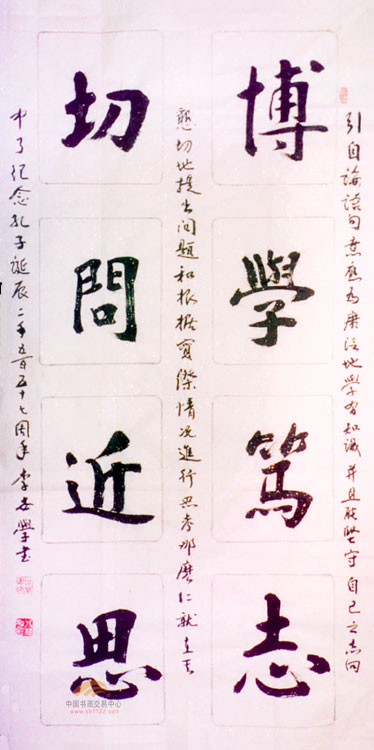 博學篤志
切問近思
引自論語句意應為廣泛地學習知識并且能堅守自己之志向
懇切地提出問題和根據實際情況進行思考那麼仁就在其
中了紀念孔子誕辰二千五百五十七周年李安學書
中国书画交易中心